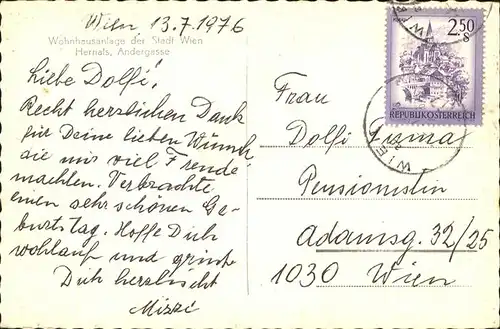 Wien 13.7.1976
Wohnhausanlage der Stadt Wien
Hernals, Andergasse
Liebe Dolfi!
Recht herzlichen Dank
für Deine lieben Wünsch
die mir viel Freude
machten. Verbrachte
einen sehr schönen Ge-
burtstag. Hoffe Dich
wohlauf und grüße
Dich herzlichst
Mizzi
2.50
S
REPUBLIK ÖSTERREICH
WIEN
Frau
Dolfi
Pensionistin
Adamsg. 32/25
1030 Wien